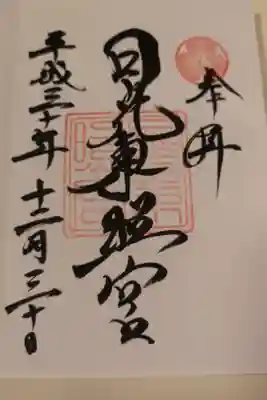 奉拝
日光東照宮
平成三十年十二月三十日